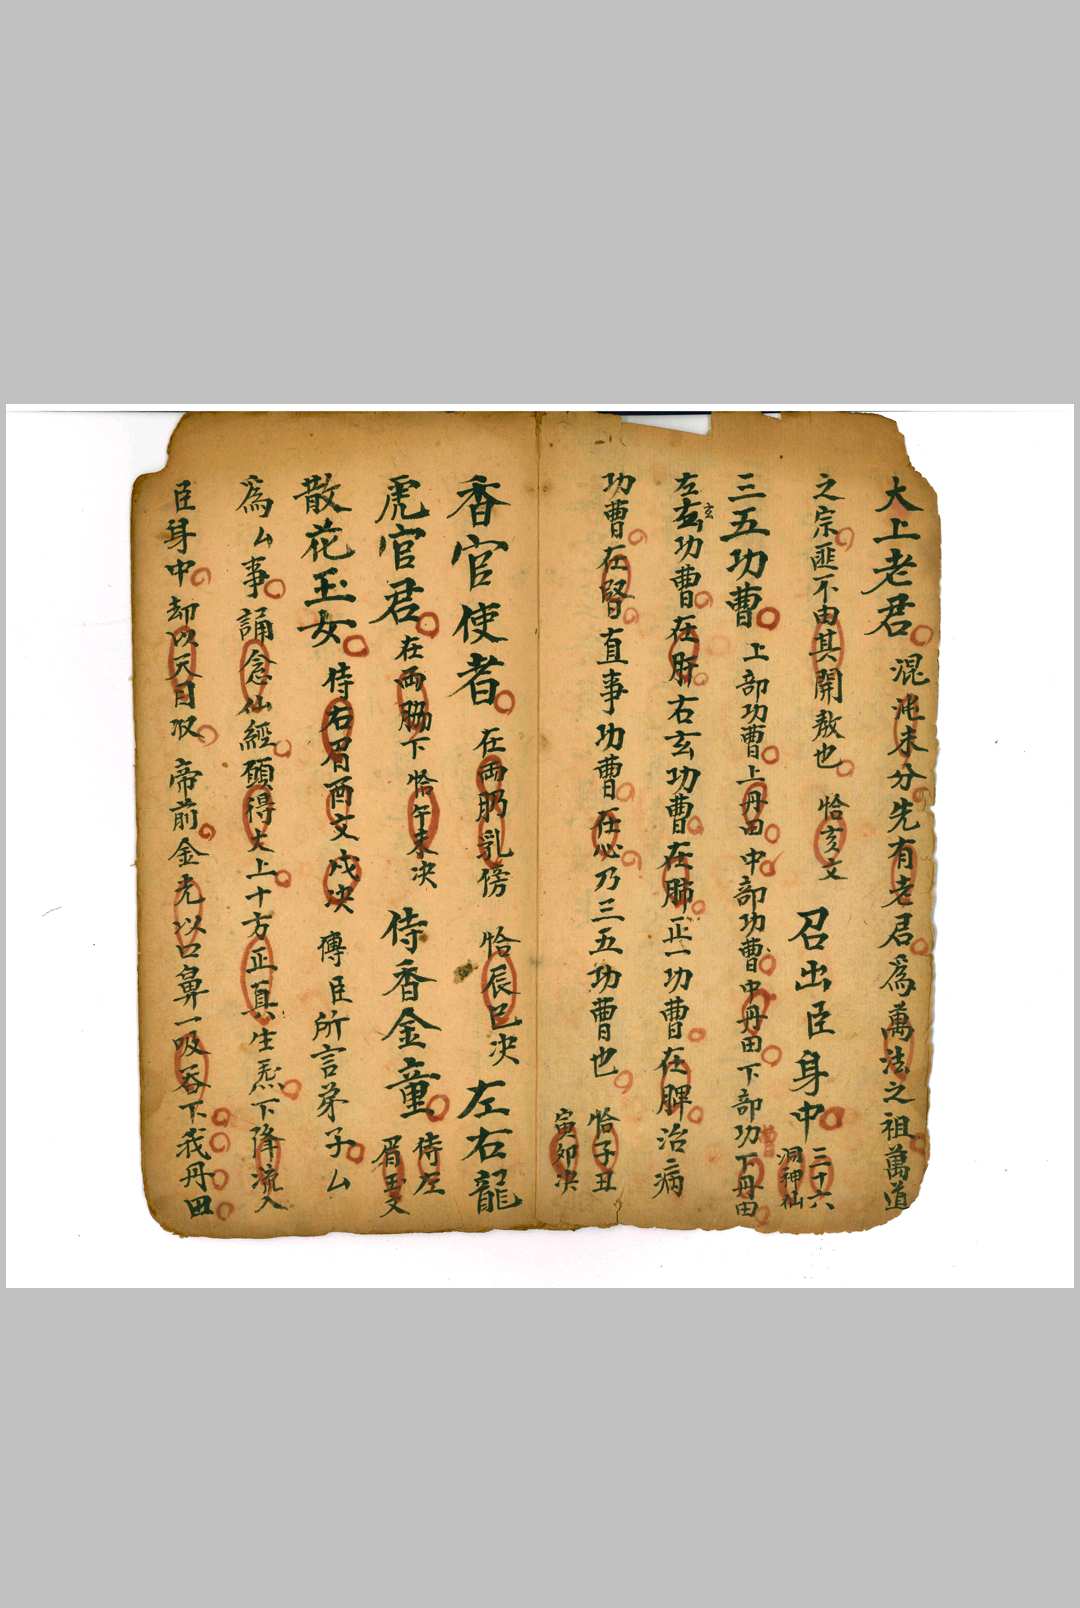 大上老君混沌未分先有老君爲萬法之祖萬道
之宗匪不由其開敖也恰亥文召出臣身中三十六洞神仙
三五功曹上部功曹上丹田中部功曹中丹田下部功曹下丹田
左玄功曹在肝右玄功曹在肺正一功曹在脾治病
功曹在腎直事功曹在心乃三五功曹也恰子丑寅卯决
香官使者在両肕乳傍恰辰巳决左右龍
虎官君在両脇下恰午未决侍香金童侍左眉玉文
散花玉女侍右眉酉文戍决傳臣所言弟子厶
爲厶事誦念仙經願得大上十方正真生炁下降流入
臣身中却以天目収帝前金光以口鼻一吸吞下我丹田